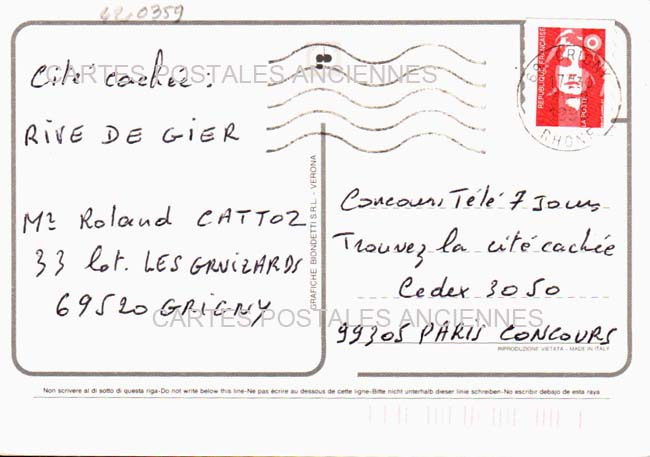 420359
CARTES POSTALES ANCIENNES
Cité cachée :
RIVE DE GIER
Mr Roland CATTOZ
33 lot. LES GRUIZARDS
69520 GRIGNY
CARTES POSTALES ANCIENNES
GRAFICHE BIONDETTI S.R.L. - VERONA
REPUBLIQUE FRANÇAISE
LA POSTE
69 GRIGNY
RHONE
Concours Télé 7 Jours
Trouvez la cité cachée
Cedex 3050
99305 PARIS CONCOURS
RIPRODUZIONE VIETATA - MADE IN ITALY
Non scrivere al di sotto di questa riga-Do not write below this line-Ne pas écrire au dessous de cette ligne-Bitte nicht unterhalb dieser linie schreiben-No escribir debajo de esta raya